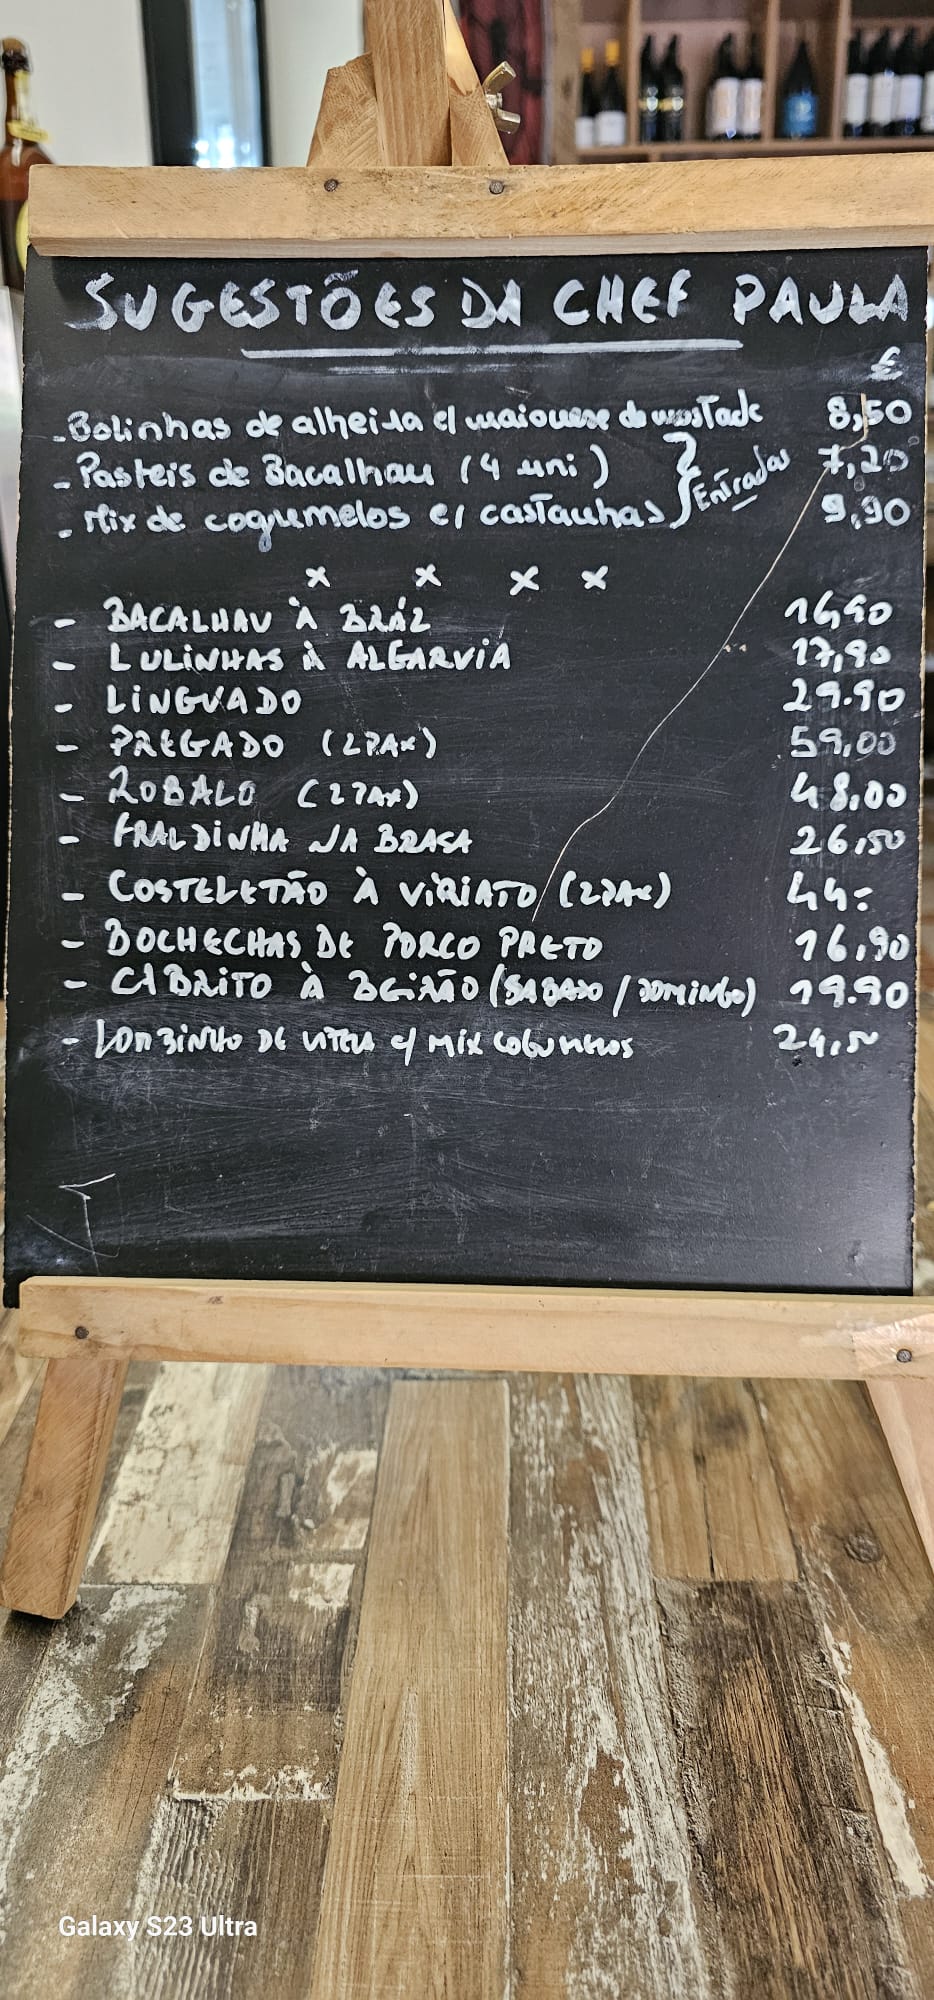 SUGESTÕES DA CHEF PAULA
€
- Bolinhas de alheira c/ maionese de mostarda 8,50
- Pasteis de Bacalhau (4 uni) 7,20
Entradas
- Mix de cogumelos c/ castanhas 9,90
x x x x
- BACALHAU À BRÁZ 16,90
- LULINHAS À ALGARVIA 17,90
- LINGUADO 29.90
- PREGADO (2PAX) 59,00
- ROBALO (2PAX) 48,00
- FRALDINHA NA BRASA 26,50
- COSTELETÃO À VIRIATO (2PAX) 44-
- BOCHECHAS DE PORCO PRETO 16,90
- CABRITO À BEIRÃO (SABADO / DOMINGO) 19.90
- LOMBINHO DE VITELA c/ MIX COGUMELOS 24,50
Galaxy S23 Ultra